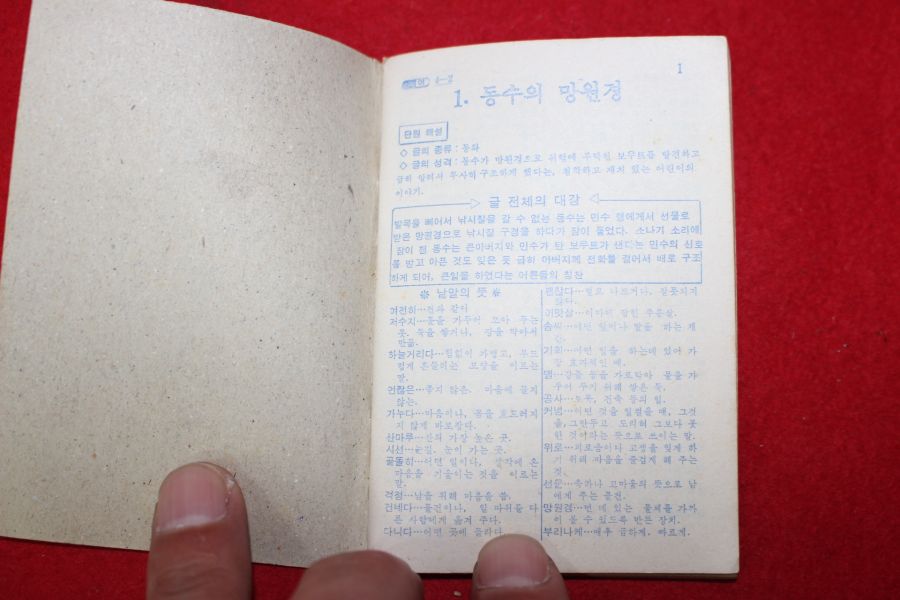 1
4-2
1. 동수의 망원경
단원 해설
◇ 글의 종류 : 동화
◇ 글의 성격 : 동수가 망원경으로 위험에 부딪친 보우트를 발견하고
급히 알려서 무사히 구조하게 했다는, 침착하고 재치 있는 어린이의
이야기.
글 전체의 대강
발목을 삐어서 낚시질을 갈 수 없는 동수는 민수 형에게서 선물로
받은 망원경으로 낚시질 구경을 하다가 잠이 들었다. 소나기 소리에
잠이 깬 동수는 큰아버지와 민수가 탄 보우트가 샌다는 민수의 신호
를 받고 아픈 것도 잊은 듯 급히 아버지께 전화를 걸어서 배로 구조
하게 되어, 큰일을 하였다는 어른들의 칭찬
※ 낱말의 뜻 ※
여전히…전과 같다
저수지…물을 가두어 모아 두는
못. 둑을 쌓거나, 강을 막아서
만듦.
하늘거리다…힘없이 가볍고, 부드
럽게 흔들리는 모양을 이르는
말.
언짢은…좋지 않은. 마음에 들지
않는.
가누다…마음이나, 몸을 흐트러지
지 않게 바로잡다.
산마루…산의 가장 높은 곳.
시선…눈길. 눈이 가는 곳.
골똘히…어떤 일이나, 생각에 온
마음을 기울이는 것을 이르는
말.
걱정…남을 위해 마음을 씀.
건네다…물건이나, 일 따위를 다
른 사람에게 옮겨 주다.
다니다…어떤 곳에 들리다
괜찮다…별로 나쁘거나, 잘못되지
않다.
이맛살…이마에 잡힌 주름살.
솜씨…어떤 일이나 말을 하는 재
간.
기회…어떤 일을 하는데 있어 가
장 효과적인 때.
댐…강물 등을 가로막아 물을 가
두어 두기 위해 쌓은 둑.
공사…토목, 건축 등의 일.
커녕…어떤 것을 일컬을 때, 그것
을 그만두고 도리어 그보다 못
한 것이라는 뜻으로 쓰이는 말.
위로…괴로움이나 고생을 잊게 하
기 위해 마음을 즐겁게 해 주는
것.
선물…축하나 고마움의 뜻으로 남
에게 주는 물건.
망원경…먼 데 있는 물체를 가까
이 볼 수 있도록 만든 장치.
부리나케…매우 급하게. 빠르게.